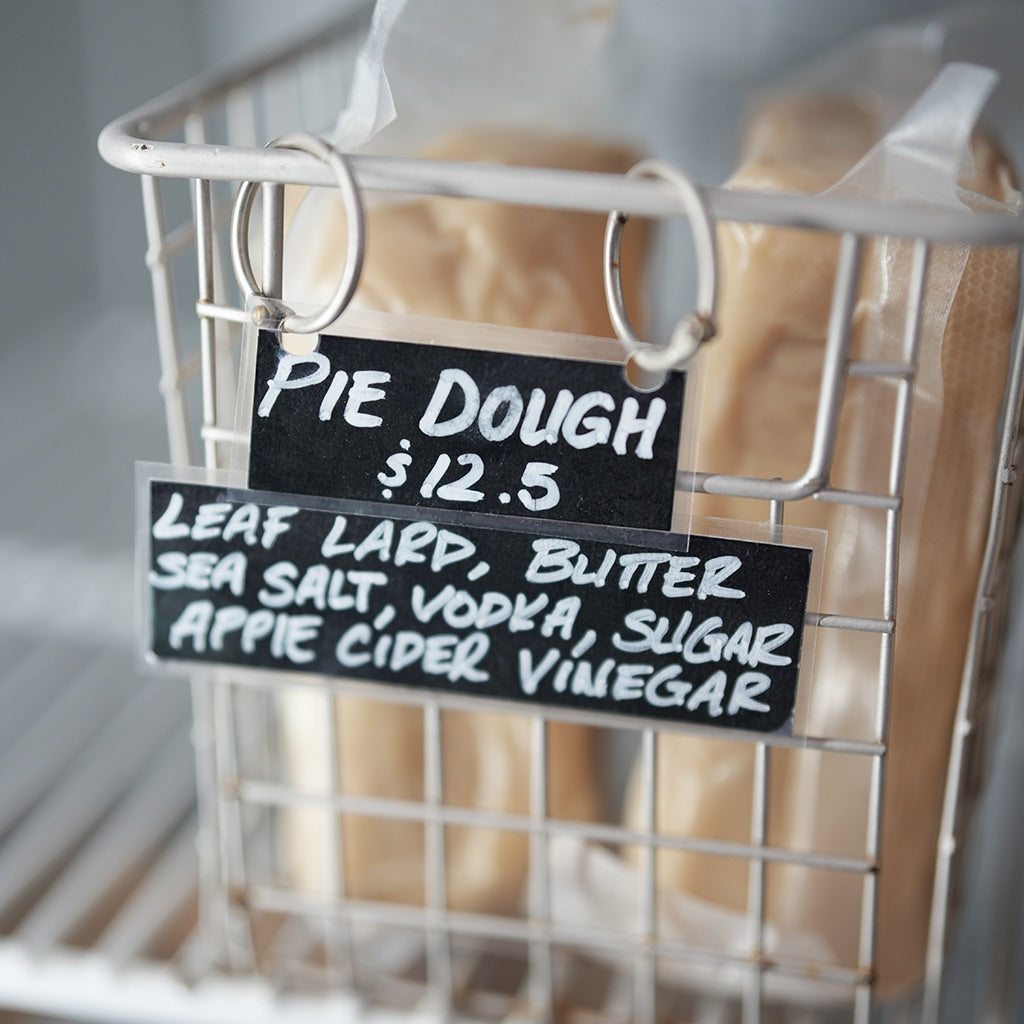 PIE DOUGH
$12.5
LEAF LARD, BUTTER
SEA SALT, VODKA, SUGAR
APPLE CIDER VINEGAR